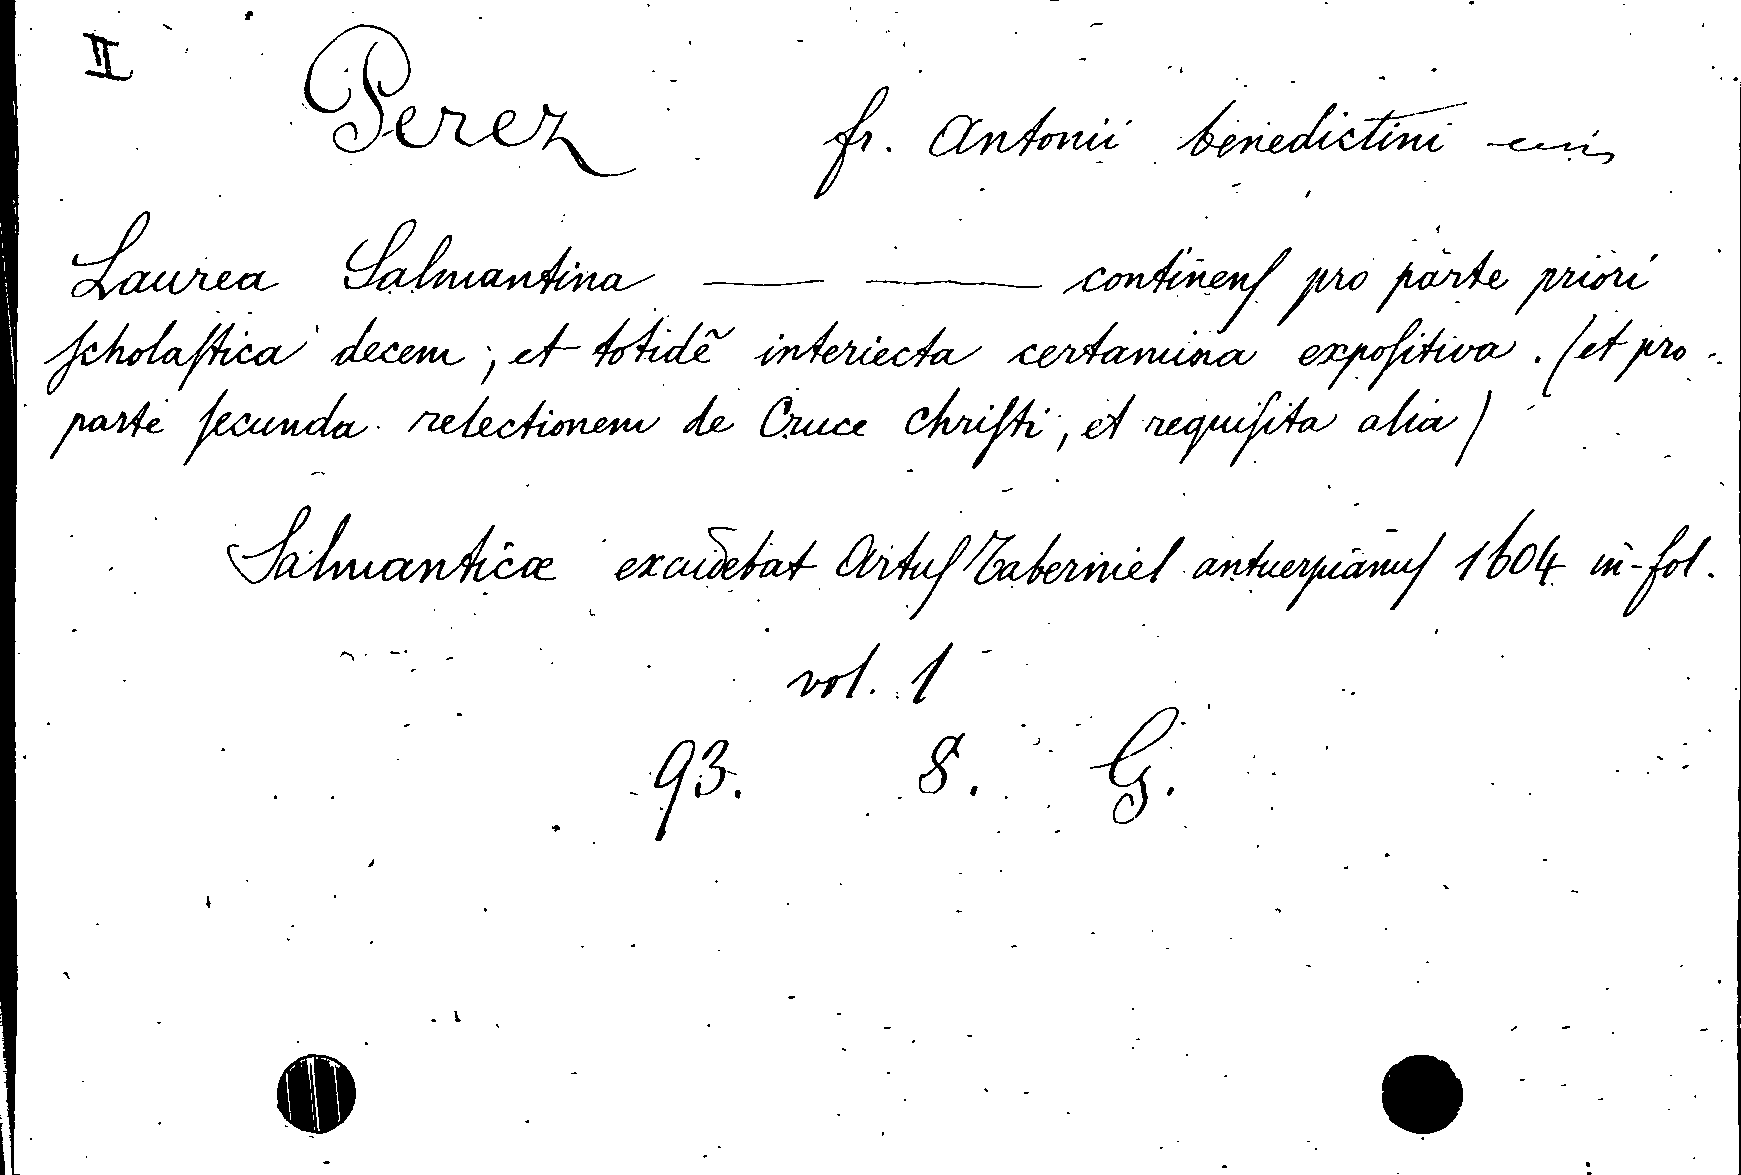 II
Perez fr. Antonii benedictini
Laurea Salmantina —— —— continenſ pro parte priori
ſcholaſtica decem, et totidẽ interiecta certamina expoſitiva. (et pro
parte ſecunda relectionem de Cruce Chriſti, et requiſita alia)
Salmanticæ excudebat Artuſ Taberniel antuerpianuſ 1604 in-fol.
vol. 1
93. 8. G.